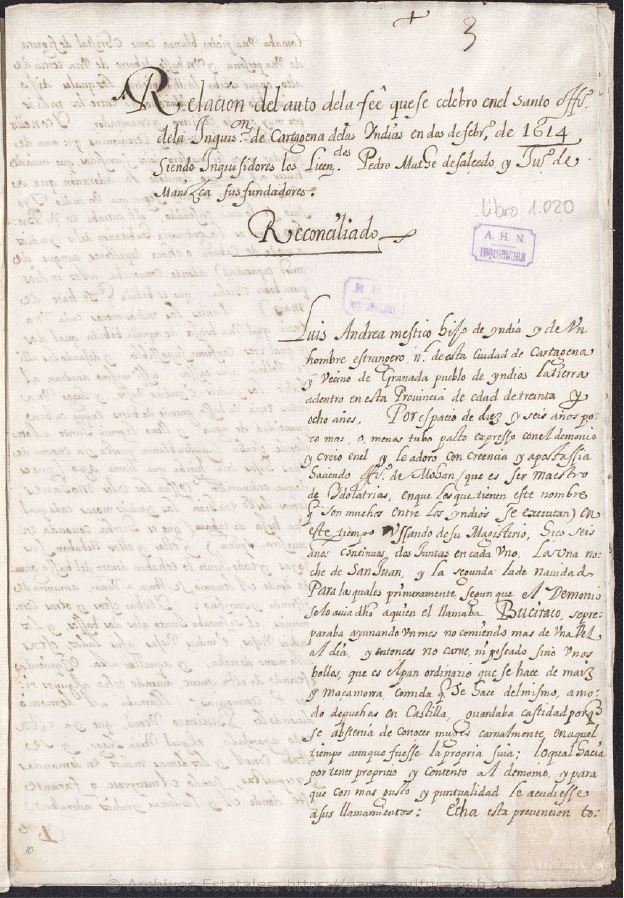 3
Relacion del auto de la fee que se celebro en el santo offº.
de la Inquison. de Cartagena de las Yndias en dos de febrº. de 1614
Siendo Inquisidores los Licendos. Pedro Mathe de salcedo y Juº. de
Mañozca sus fundadores.
Reconciliado
Libro 1.020
A. H. N.
INQUISICION
Luis Andrea mestiço hijo de yndia y de Un
hombre estrangero, nl. de esta Ciudad de Cartagena
y Vecino de Granada pueblo de yndios la tierra
adentro en esta Provincia de edad de treinta y
ocho años. Por espacio de diez y seis años po
co mas, o menos tubo pacto expresso con el demonio
y creio en el y le adoro con creencia y apostassia
haciendo offº. de Mohan (que es ser maestro
de Ydolatrias, en que los que tienen este nombre
q son muchos entre los yndios se executan) en
este tiempo Vssando de su Magisterio, hiço seis
años continuos, dos Juntas en cada Vno. La Vna no
che de San Juan, y la segunda la de navidad
Para las quales primeramente segun que el Demonio
se lo auia dho a quien el llamaba Buciraco, se pre
paraba ayunando Vn mes no comiendo mas de Vna Vez
al dia, y entonces no carne, ni pescado sino Vnos
bollos, que es el pan ordinario que se hace de maiz
y maçamorra comida q se hace del mismo, a mo
do de puchas en Castilla, guardaba castidad porq
se abstenia de conocer muger carnalmente, en aquel
tiempo aunque fuesse la propria suia: lo qual hacia
por tener propicio y contento al demonio, y para
que con mas gusto y puntualidad le acudiesse
a sus llamamientos: Echa esta prevencion to:
10
© Archivos Estatales, https://pares.cultura.gob.es